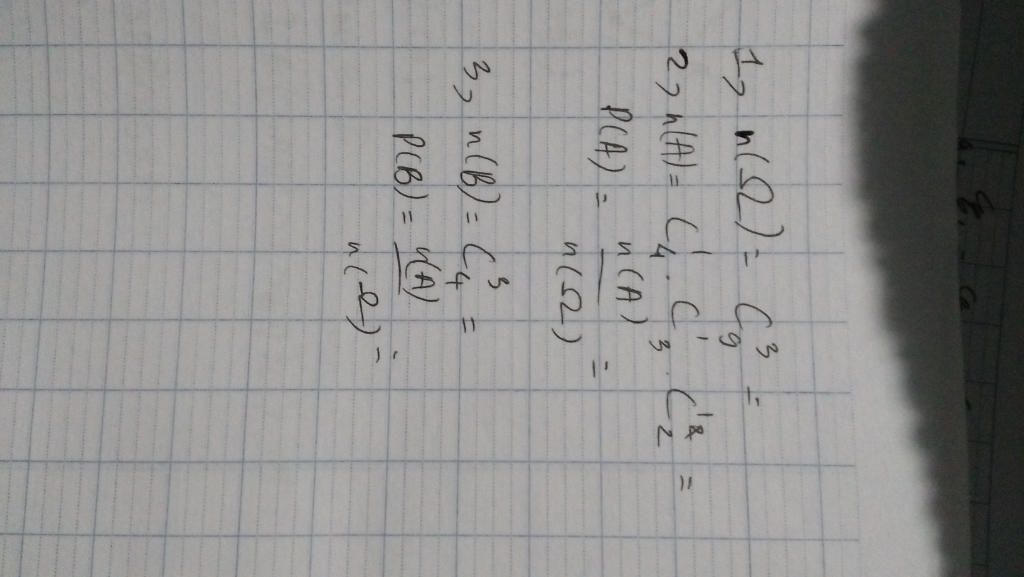 1, n(Ω) = C₉³ =
2, n(A) = C₄¹ . C₃¹ . C₂¹ =
P(A) = n(A) / n(Ω) =
3, n(B) = C₄³ =
P(B) = n(A) / n(Ω) =